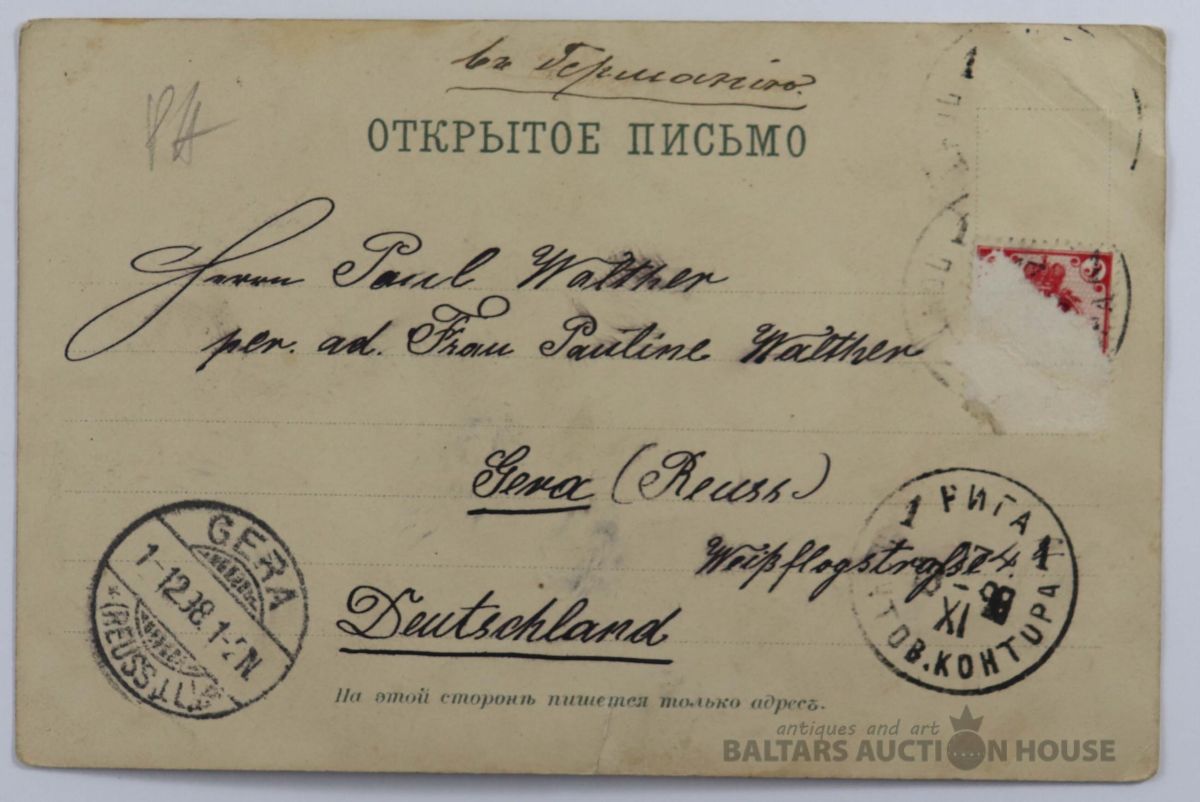 въ Германію.
ОТКРЫТОЕ ПИСЬМО
Herrn Paul Walther
per. ad. Frau Pauline Walther
Gera (Reuss)
Weißflogstraße 4.
Deutschland
На этой сторонѣ пишется только адресъ.
GERA
1-12.98.1-2N.
*(REUSS J.L.)*
1 РИГА 1
XI
ПОЧТОВ. КОНТОРА
antiques and art
BALTARS AUCTION HOUSE